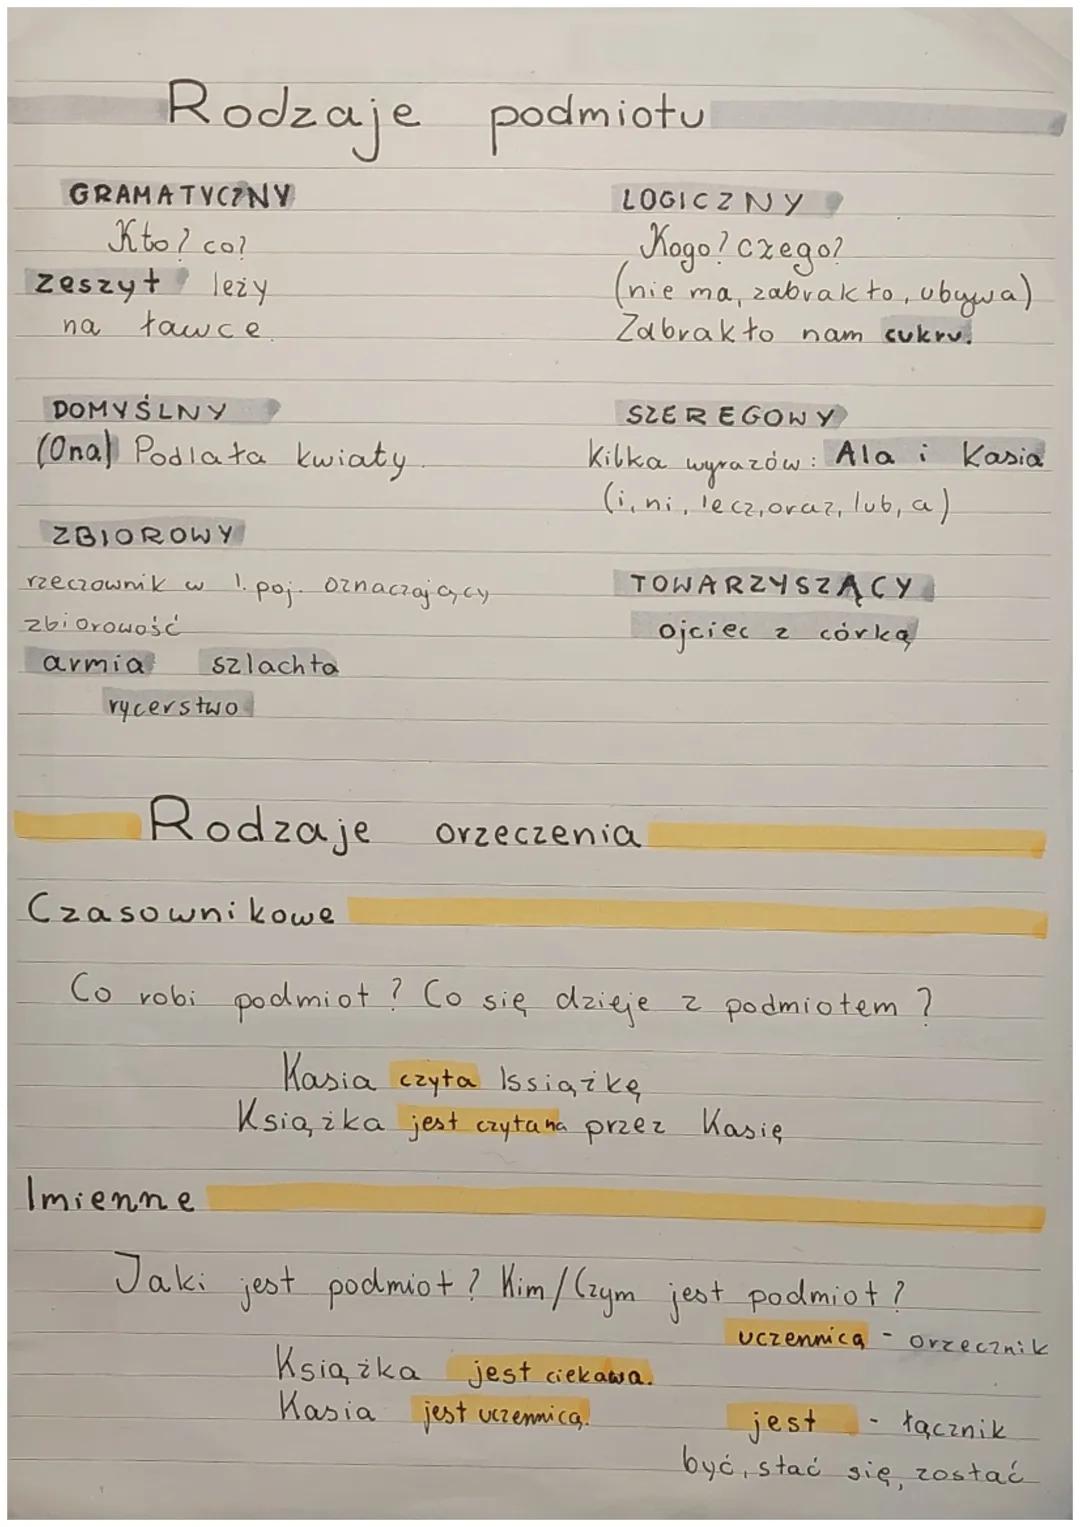 Rodzaje podmiotu
GRAMATYCZNY
Kto? co?
zeszyt leży
na ławce
LOGICZNY
Kogo? czego?
(nie ma, zabrakło, ubywa)
Zabrakło nam cukru.
DOMYŚLNY
(Ona) Podlała kwiaty.
SZEREGOWY
Kilka wyrazów: Ala i Kasia
(i, ni, lecz, oraz, lub, a)
ZBIOROWY
rzeczownik w l. poj. oznaczający
zbiorowość
armia szlachta
rycerstwo
TOWARZYSZĄCY
ojciec z córką
Rodzaje orzeczenia
Czasownikowe
Co robi podmiot? Co się dzieje z podmiotem?
Kasia czyta książkę
Książka jest czytana przez Kasię
Imienne
Jaki jest podmiot? Kim/Czym jest podmiot?
uczennicą - orzecznik
Książka jest ciekawa.
Kasia jest uczennicą.
jest - łącznik
być, stać się, zostać